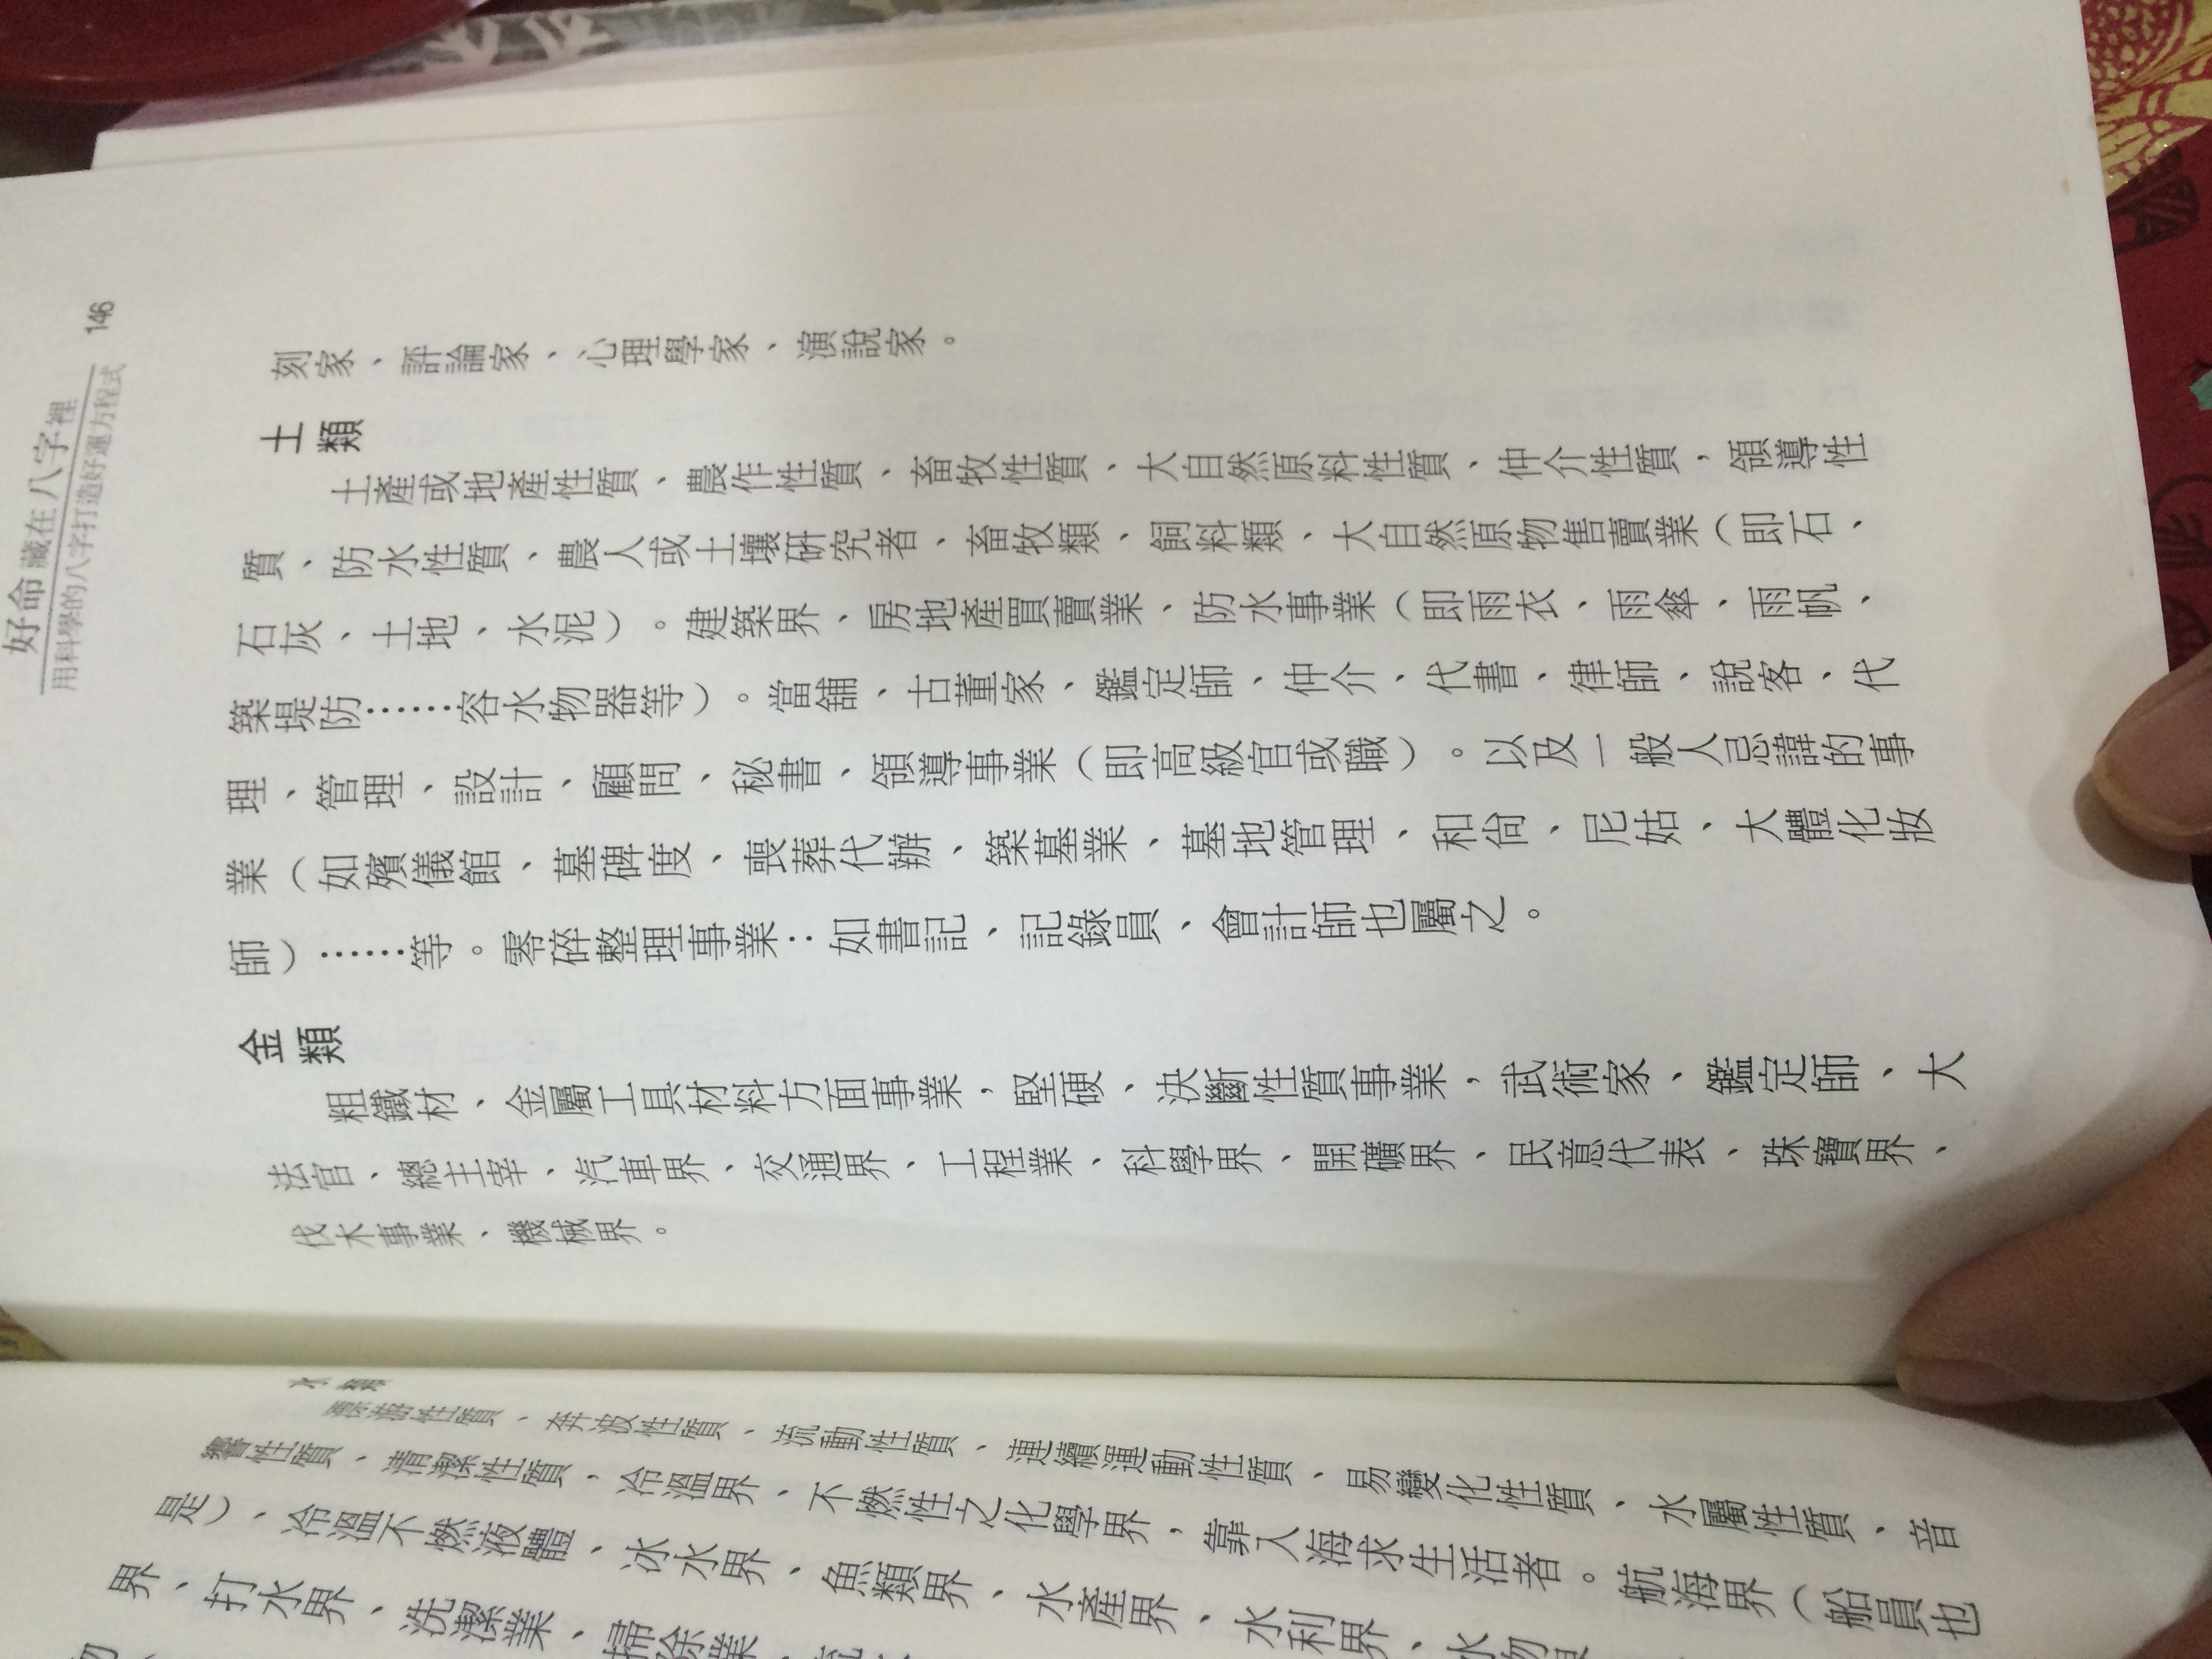 好命藏在八字裡
用科學的八字打造好運方程式
146
刻家、評論家、心理學家、演說家。
土類
土產或地產性質、農作性質、畜牧性質、大自然原料性質、仲介性質，領導性
質、防水性質、農人或土壤研究者、畜牧類、飼料類、大自然原物售賣業（即石、
石灰、土地、水泥）。建築界、房地產買賣業、防水事業（即雨衣、雨傘、雨帆、
築堤防……容水物器等）。當舖、古董家、鑑定師、仲介、代書、律師、說客、代
理、管理、設計、顧問、秘書、領導事業（即高級官或職）。以及一般人忌諱的事
業（如殯儀館、墓碑度、喪葬代辦、築墓業、墓地管理、和尚、尼姑、大體化妝
師）……等。零碎整理事業：如書記、記錄員、會計師也屬之。
金類
粗鐵材、金屬工具材料方面事業，堅硬、決斷性質事業，武術家、鑑定師、大
法官、總主宰、汽車界、交通界、工程業、科學界、開礦界、民意代表、珠寶界、
伐木事業、機械界。
水類
漂游性質、奔波性質、流動性質、連續運動性質、易變化性質、水屬性質、音
響性質、清潔性質，冷溫界、不燃性之化學界，靠入海求生活者。航海界（船員也
是）、冷溫不燃液體、冰水界、魚類界、水產界、水利界、水物
界、打水界、洗潔業、掃除業、流
物